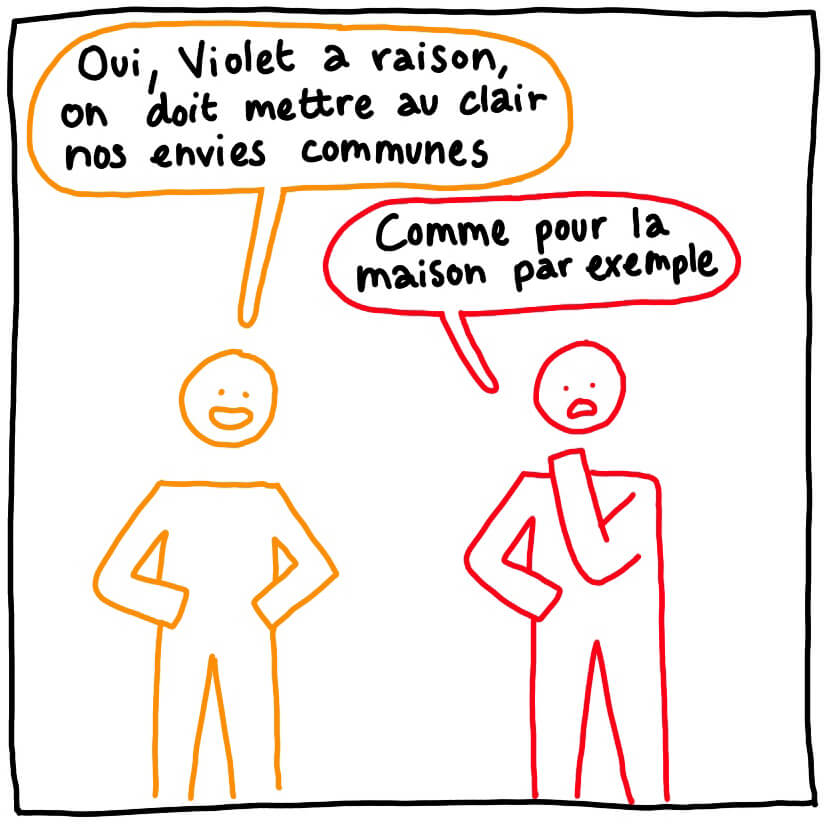 Oui, Violet a raison,
on doit mettre au clair
nos envies communes
Comme pour la
maison par exemple